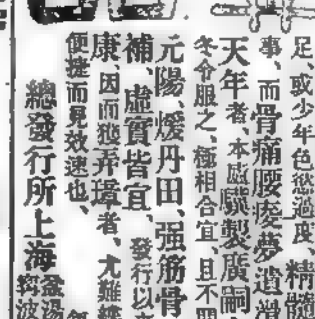 足、或少年色慾過度、精髓
事、而骨痛腰痠夢遺滑
天年者、本廠驥製廣嗣
冬令服之、極相合宜、且不
元陽、煖丹田、强筋骨
補、虛實皆宜、發行以
康、因而獲弄璋者、尤難
便捷而易效速也、
總發行所上海